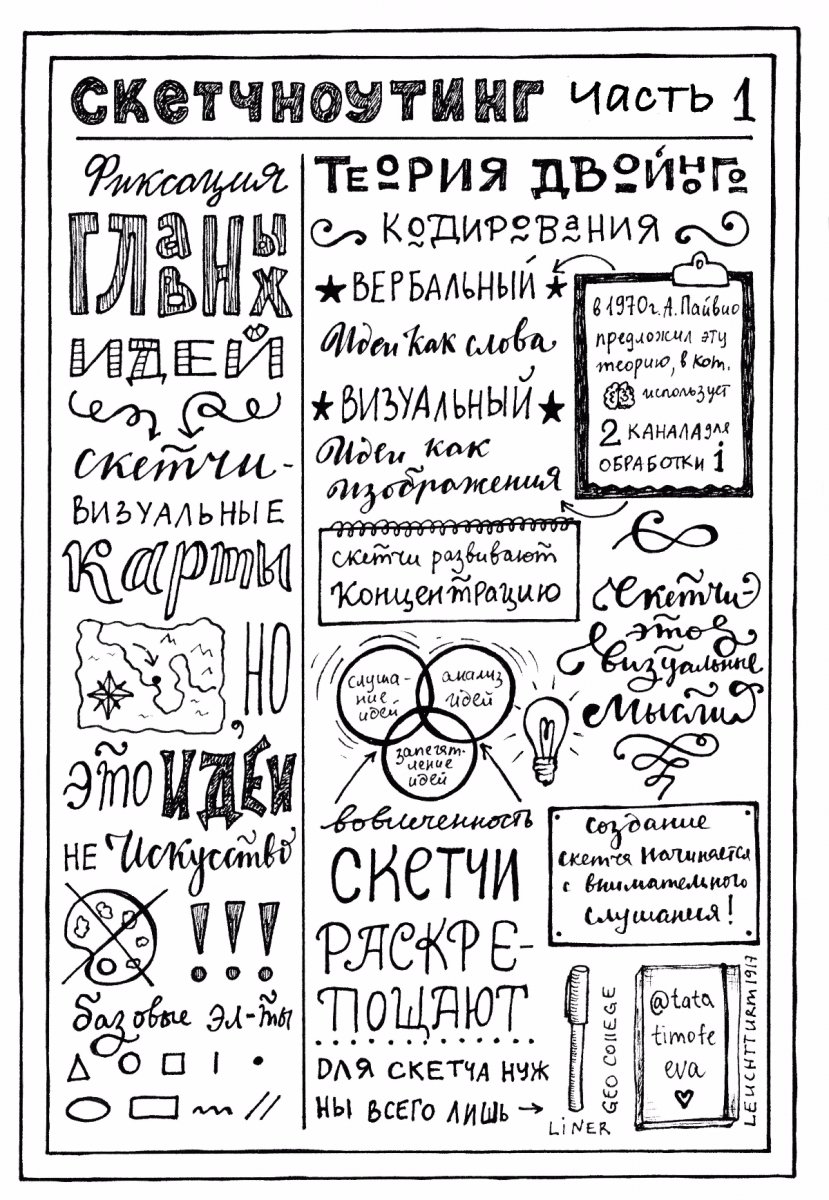 СКЕТЧНОУТИНГ ЧАСТЬ 1
Фиксация
ГЛавНы
ьх
ИДЕЙ
скетчи-
ВИЗУАЛЬНЫЕ
карты
, НО
ЭТО ИДЕИ
НЕ Искусство
!!!
базовые эл-ты
ТЕОРИЯ ДВОЙНОГО
КОДИРОВАНИЯ
★ ВЕРБАЛЬНЫЙ ★
Идеи как слова
★ ВИЗУАЛЬНЫЙ ★
Идеи как
изображения
в 1970г. А. Пайвио
предложил эту
теорию, в кот.
использует
2 КАНАЛА для
ОБРАБОТКИ i
скетчи развивают
КОНЦЕНТРАЦИЮ
слуша-
ние
идей
анализ
идей
запечат-
ление
идей
вовлеченность
Скетчи-
это
визуальные
мысли
СКЕТЧИ
РАСКРЕ-
ПОЩАЮТ
создание
скетча начинается
с внимательного
слушания!
ДЛЯ СКЕТЧА НУЖ
НЫ ВСЕГО ЛИШЬ →
LINER
GEO COLLEGE
@tata
timofe
eva
♥
LEUCHTTURM1917